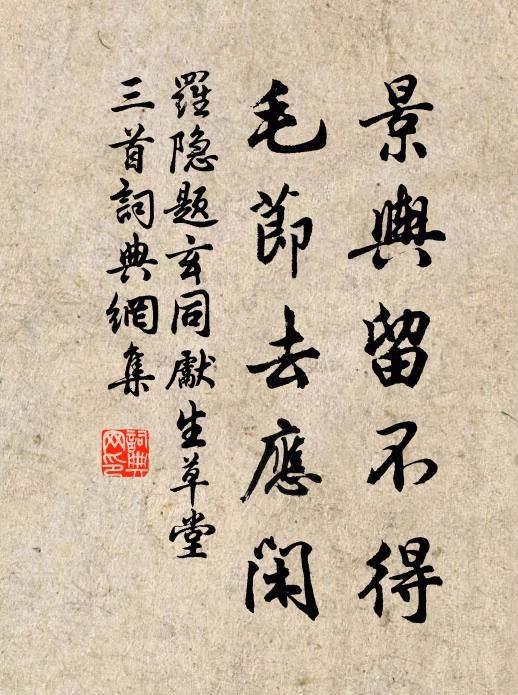 景輿留不得
毛節去應閑
羅隐題玄同獻生草堂
三首詞典網集
詞典
网印